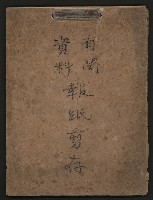 有關
資料報紙剪存